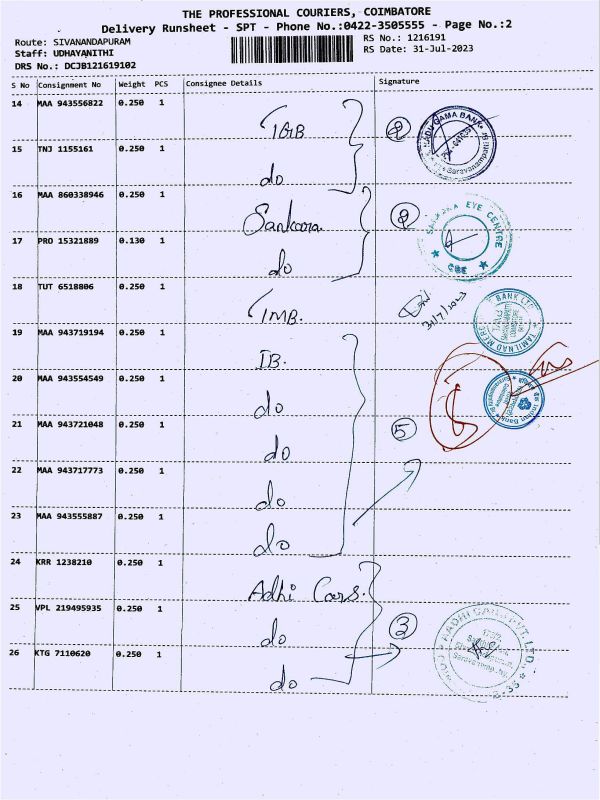 THE PROFESSIONAL COURIERS, COIMBATORE
Delivery Runsheet - SPT - Phone No.:0422-3505555 - Page No.:2
Route: SIVANANDAPURAM
Staff: UDHAYANITHI
DRS No.: DCJB121619102
RS No.: 1216191
RS Date: 31-Jul-2023
S No Consignment No Weight PCS Consignee Details Signature
14 MAA 943556822 0.250 1
15 TNJ 1155161 0.250 1 do
16 MAA 860338946 0.250 1 Sankara
17 PRO 15321889 0.130 1 do
18 TUT 6518806 0.250 1 TMB.
31/7/2023
19 MAA 943719194 0.250 1 IB.
20 MAA 943554549 0.250 1 do
21 MAA 943721048 0.250 1 do 5
22 MAA 943717773 0.250 1 do
23 MAA 943555887 0.250 1 do
24 KRR 1238210 0.250 1 Adhi Cars.
25 VPL 219495935 0.250 1 do 3
26 KTG 7110620 0.250 1 do
EYE CENTRE
CBE
BANK LTD
TAMILNAD MERC
Indian Bank
PVT. LTD.